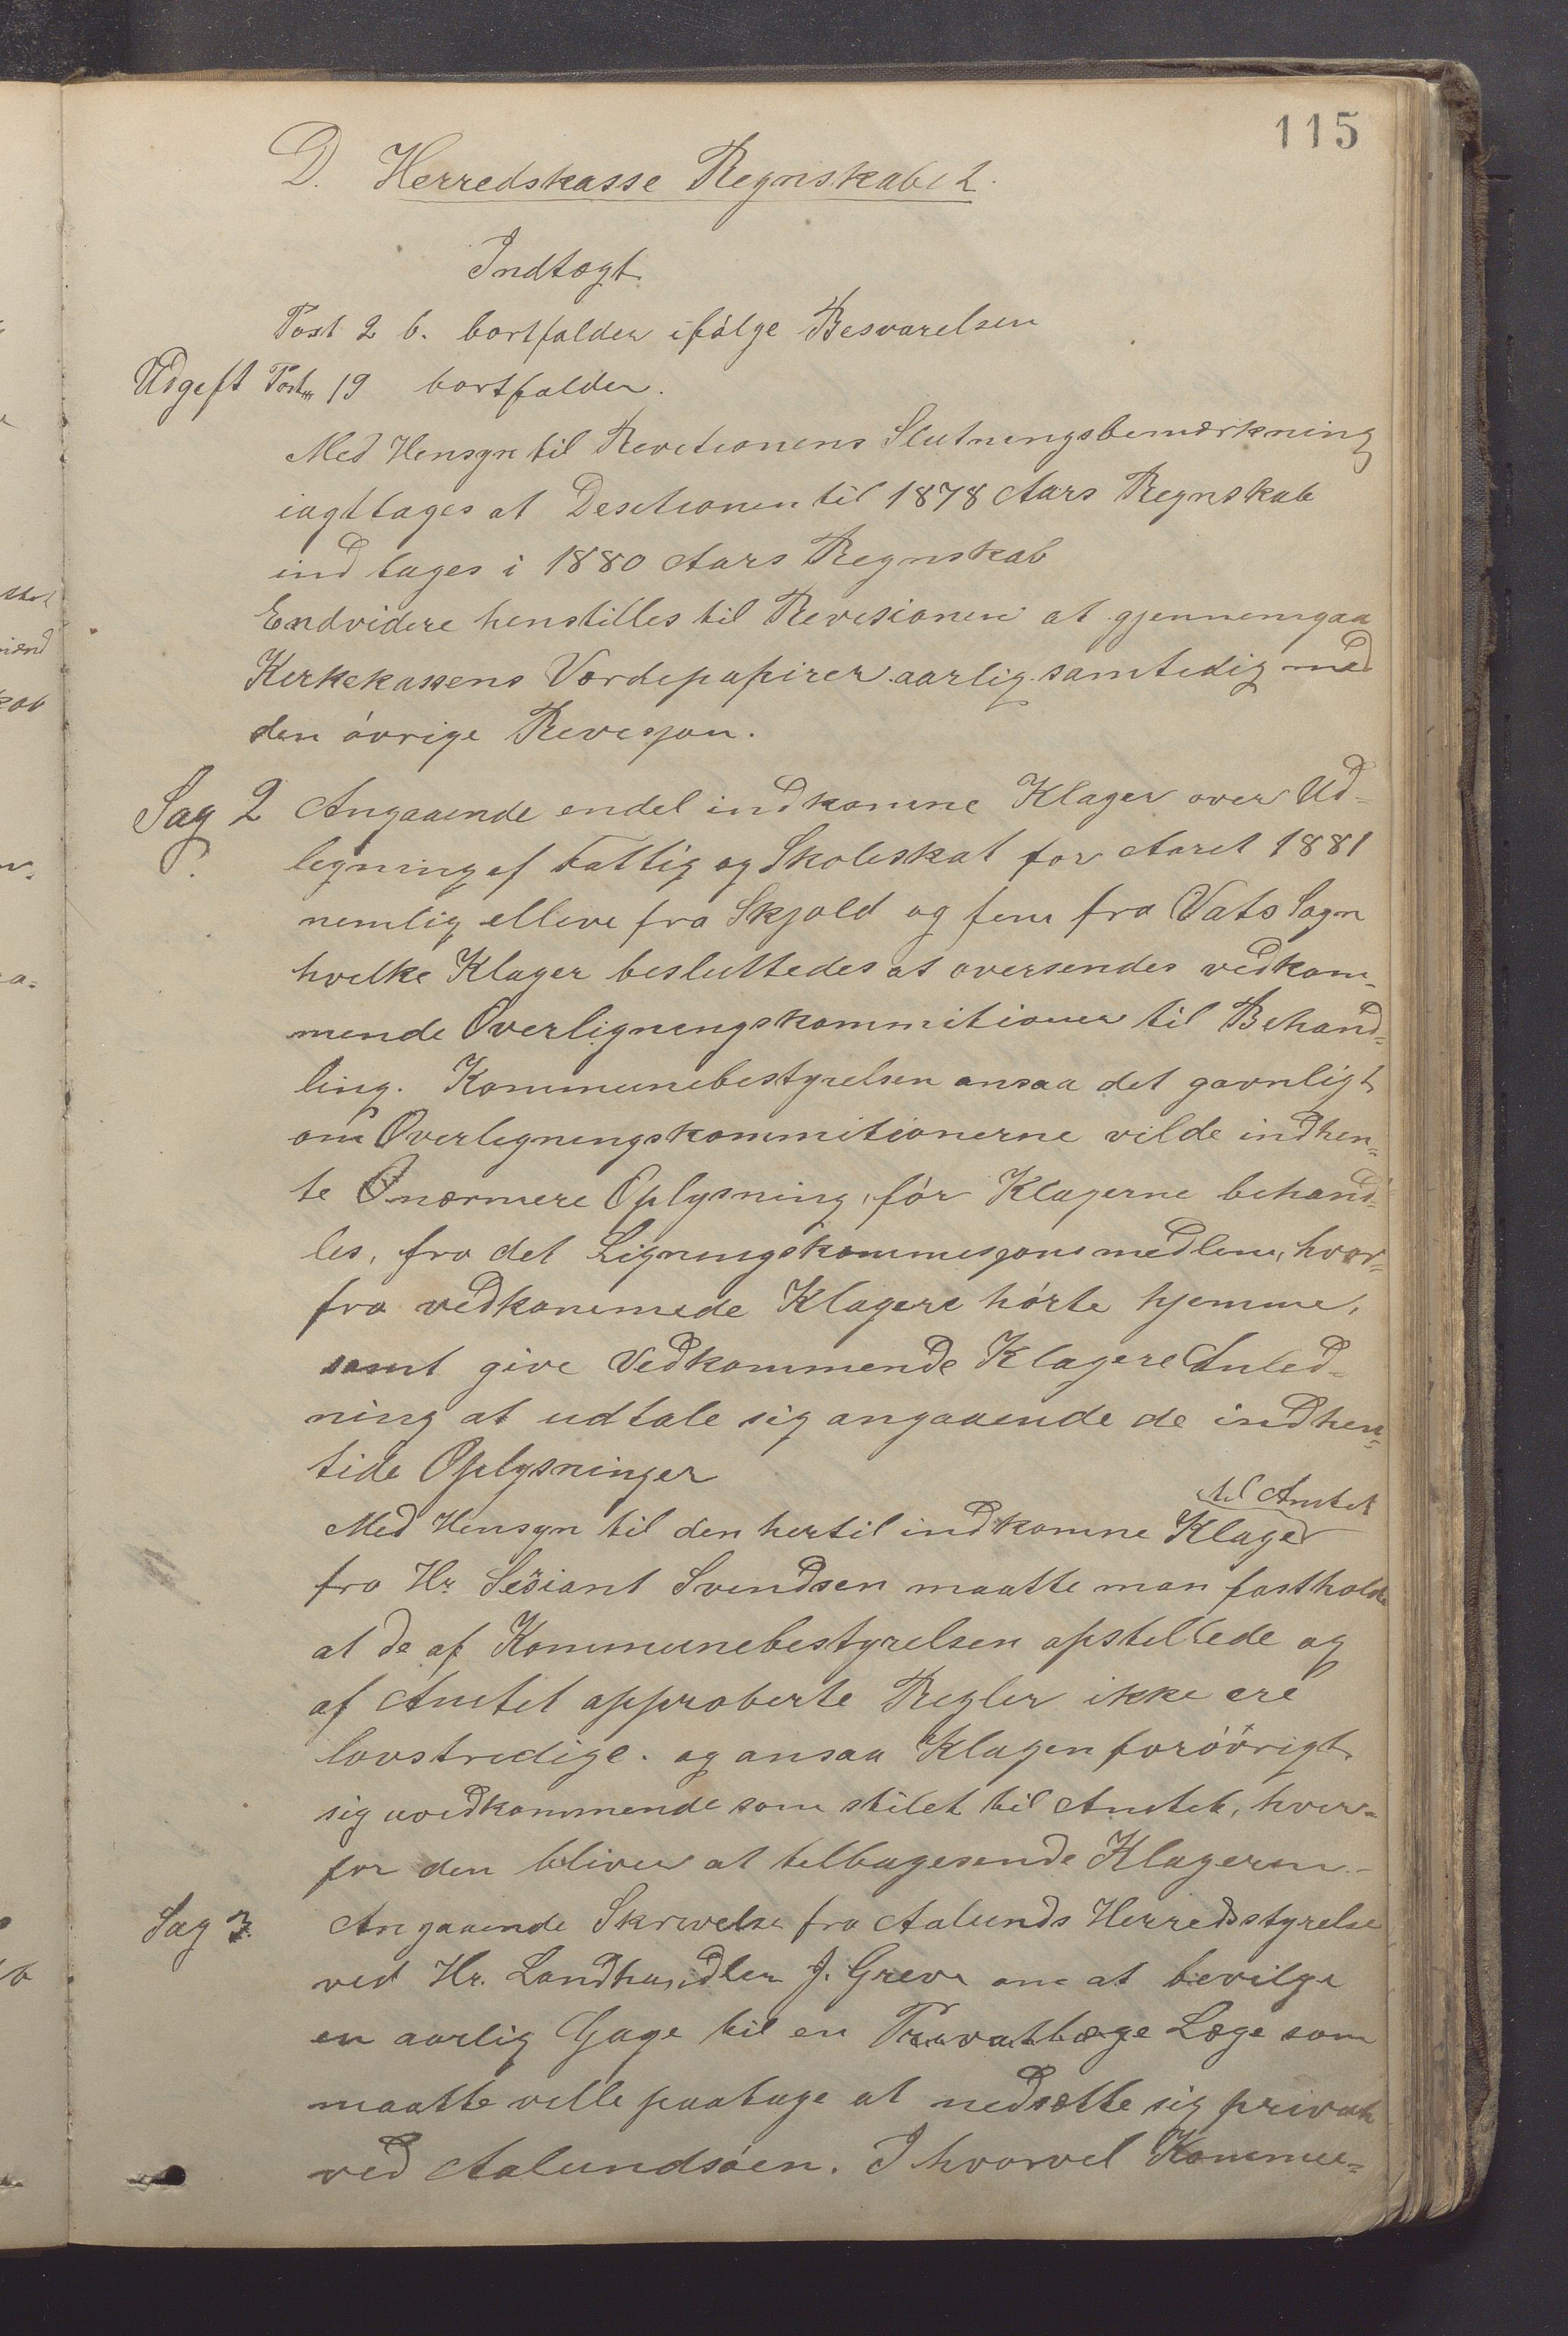 115
D. Herredskasse Regnskabet.
Indtægt.
Post 2 b. bortfalder ifølge Besvarelsen
Udgift Post 19 bortfalder.
Med Hensyn til Revitionens Slutningsbemærkning
iagttages at Desitionen til 1878 Aars Regnskab
ind tages i 1880 Aars Regnskab
Endvidere henstilles til Revisionen at gjennemgaa
Kirkekassens Værdipapirer aarlig samtidig med
den øvrige Revisjon.
Sag 2 Angaaende endel indkomne Klager over Ud-
ligning af Fattig og Skoleskat for Aaret 1881
nemlig elleve fra Skjold og fem fra Vats Sogn
hvilke Klager besluttedes at oversendes vedkom-
mende Overligningskommitioner til Behand-
ling. Kommunebestyrelsen ansaa det gavnligt
om Overligningskommitionerne vilde indhen-
te nærmere Oplysning, før Klagerne behand-
les, fra det Ligningskommisjonsmedlem, hvor-
fra vedkommede Klagere hørte hjemme,
samt give Vedkommende Klagere Anled-
ning at udtale sig angaaende de indhen-
tide Oplysninger
til Amtet
Med Hensyn til den hertil indkomne Klage
fra Hr. Sersiant Svendsen maatte man fastholde
at de af Kommunebestyrelsen opstillede og
af Amtet approberte Regler ikke ere
lovstridige. og ansaa Klagen forøvrigt
sig uvedkommende som stilet til Amtet, hvor-
for den bliver at tilbagesende Klageren.-
Sag 3. Angaaende Skrivelse fra Aalunds Herredsstyrelse
ved Hr. Landhandler J. Greve om at bevilge
en aarlig Gage til en Privatlæge Læge som
maatte ville paatage at nedsætte sig privat
ved Aalundsøen. I hvorvel Kommu-